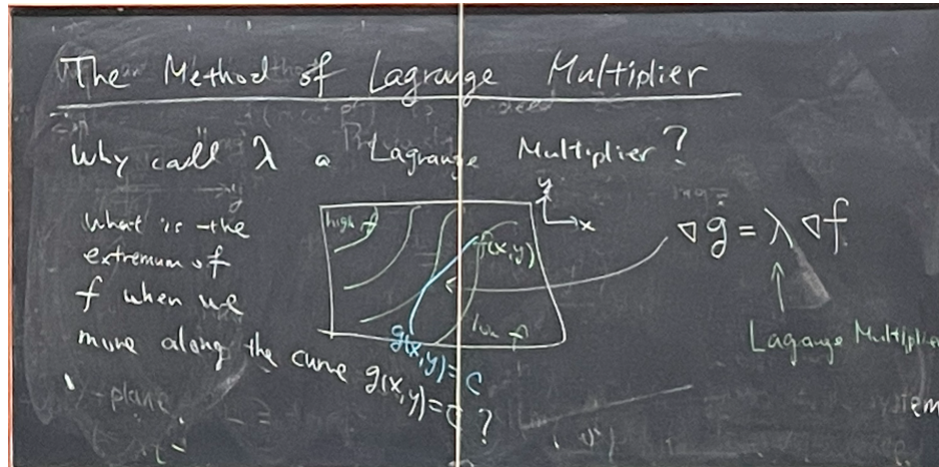 The Method of Lagrange Multiplier
Why call λ a Lagrange Multiplier?
What is the
extremum of
f when we
move along the curve g(x,y)=C?
high f
f(x,y)
low f
g(x,y)=C
y
x
∇g=λ∇f
Lagange Multiplier
-plane